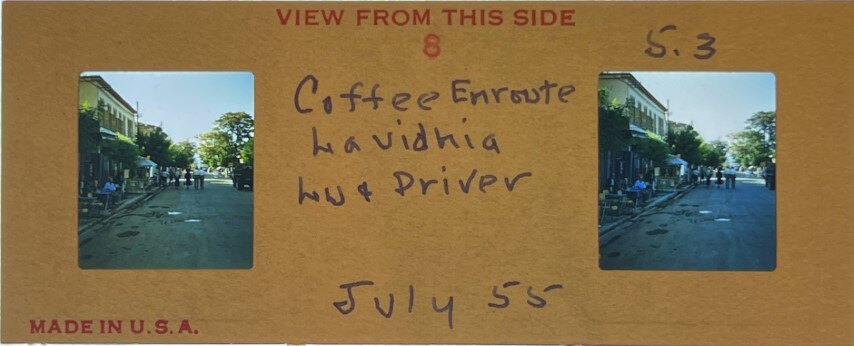 VIEW FROM THIS SIDE
8
5.3
Coffee Enroute
Lavidhia
Lu & Driver
July 55
MADE IN U.S.A.